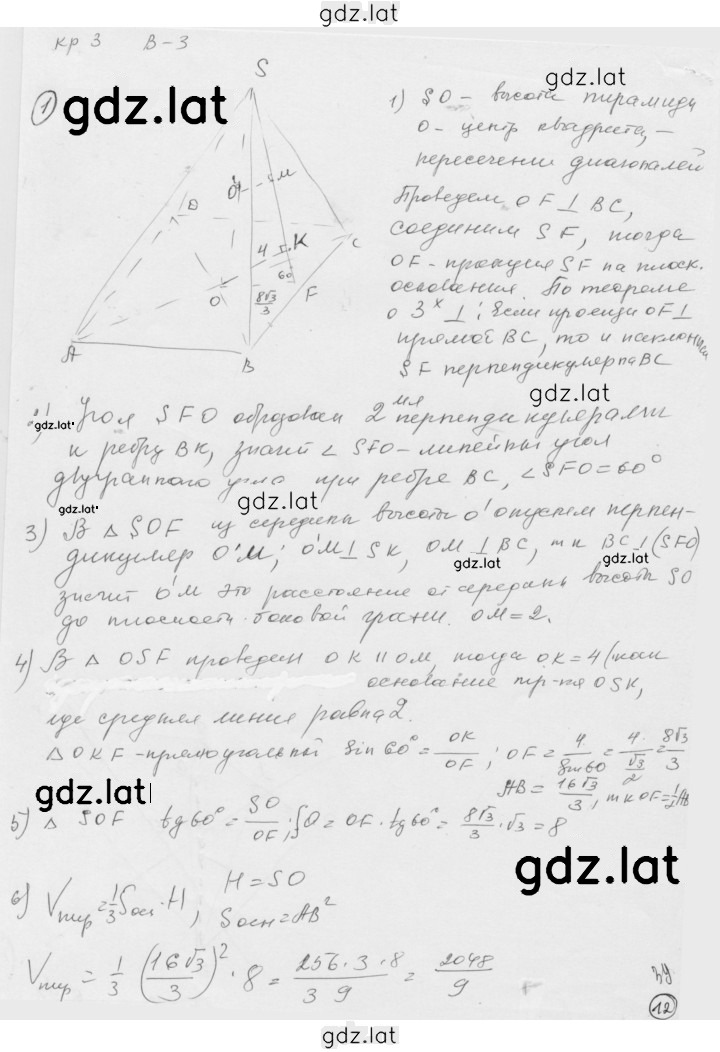 gdz.lat
кр 3 В-3
gdz.lat
1
gdz.lat
S
O' 2 М
D
4 K
C
60
O F
8√3/3
A
B
1) SO - высота пирамиды
O - центр квадрата, -
пересечении диагоналей
Проведем OF ⊥ BC,
соединим SF, тогда
OF - проекция SF на плоск.
основания. По теореме
о 3х ⊥: Если проекция OF ⊥
прямой BC, то и наклонная
SF перпендикулярна BC
gdz.lat
gdz.lat
Угол SFO образован 2мя перпендикулярами
к ребру BK, значит ∠ SFO - линейный угол
двугранного угла при ребре BC, ∠SFO = 60°
gdz.lat
gdz.lat
3) В △ SOF из середины высоты O' опустим перпен-
дикуляр O'M; O'M ⊥ SK, OM ⊥ BC, т к BC ⊥ (SFO)
gdz.lat
gdz.lat
значит O'M это расстояние от середины высоты SO
до плоскости боковой грани. OM = 2.
4) В △ OSF проведем OK || OM, тогда OK = 4 (как
основание тр-ка OSK,
где средняя линия равна 2.
△ OKF - прямоугольный sin 60° = OK/OF ; OF = 4/sin 60 = 4/(√3/2) = 8√3/3
gdz.lat
AB = 16√3/3, т к OF = 1/2 AB
5) △ SOF tg 60° = SO/OF ; SO = OF · tg 60° = 8√3/3 · √3 = 8
gdz.lat
6) Vпир = 1/3 Sосн · H, H = SO
Sосн = AB²
Vпир = 1/3 (16√3/3)² · 8 = 256 · 3 · 8/3 9 = 2048/9
12
gdz.lat